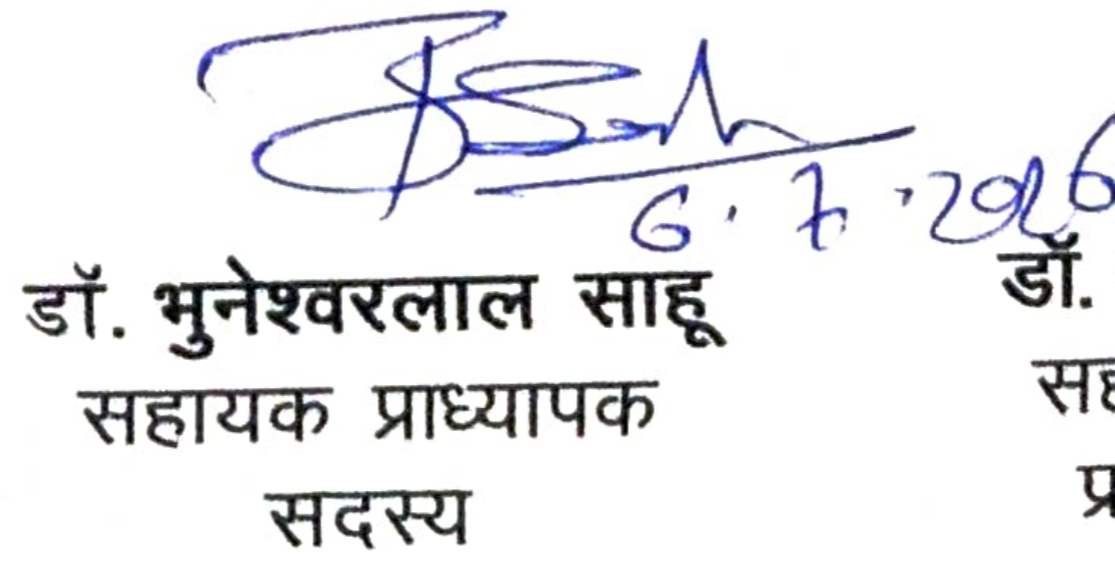 6.7.2026
डॉ. भुनेश्वरलाल साहू डॉ.
सहायक प्राध्यापक
सदस्य